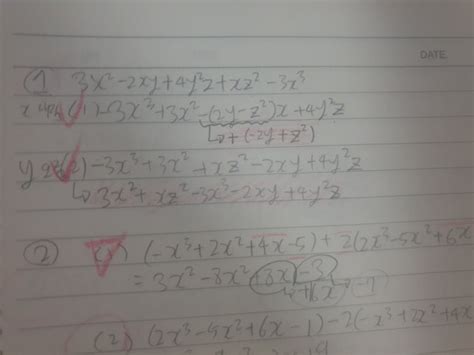 DATE
① 3x²-2xy+4y²z+xz²-3x³
(1) -3x³+3x²-(2y-z²)x+4y²z
+(-2y+z²)
(2) -3x³+3x²+xz²-2xy+4y²z
3x²+xz²-3x³-2xy+4y²z
② (1) (-x³+2x²+4x-5)+2(2x³-5x²+6x
=3x³-8x²+8x-3
(2) (2x³-5x²+6x-1)-2(-x³+2x²+4x